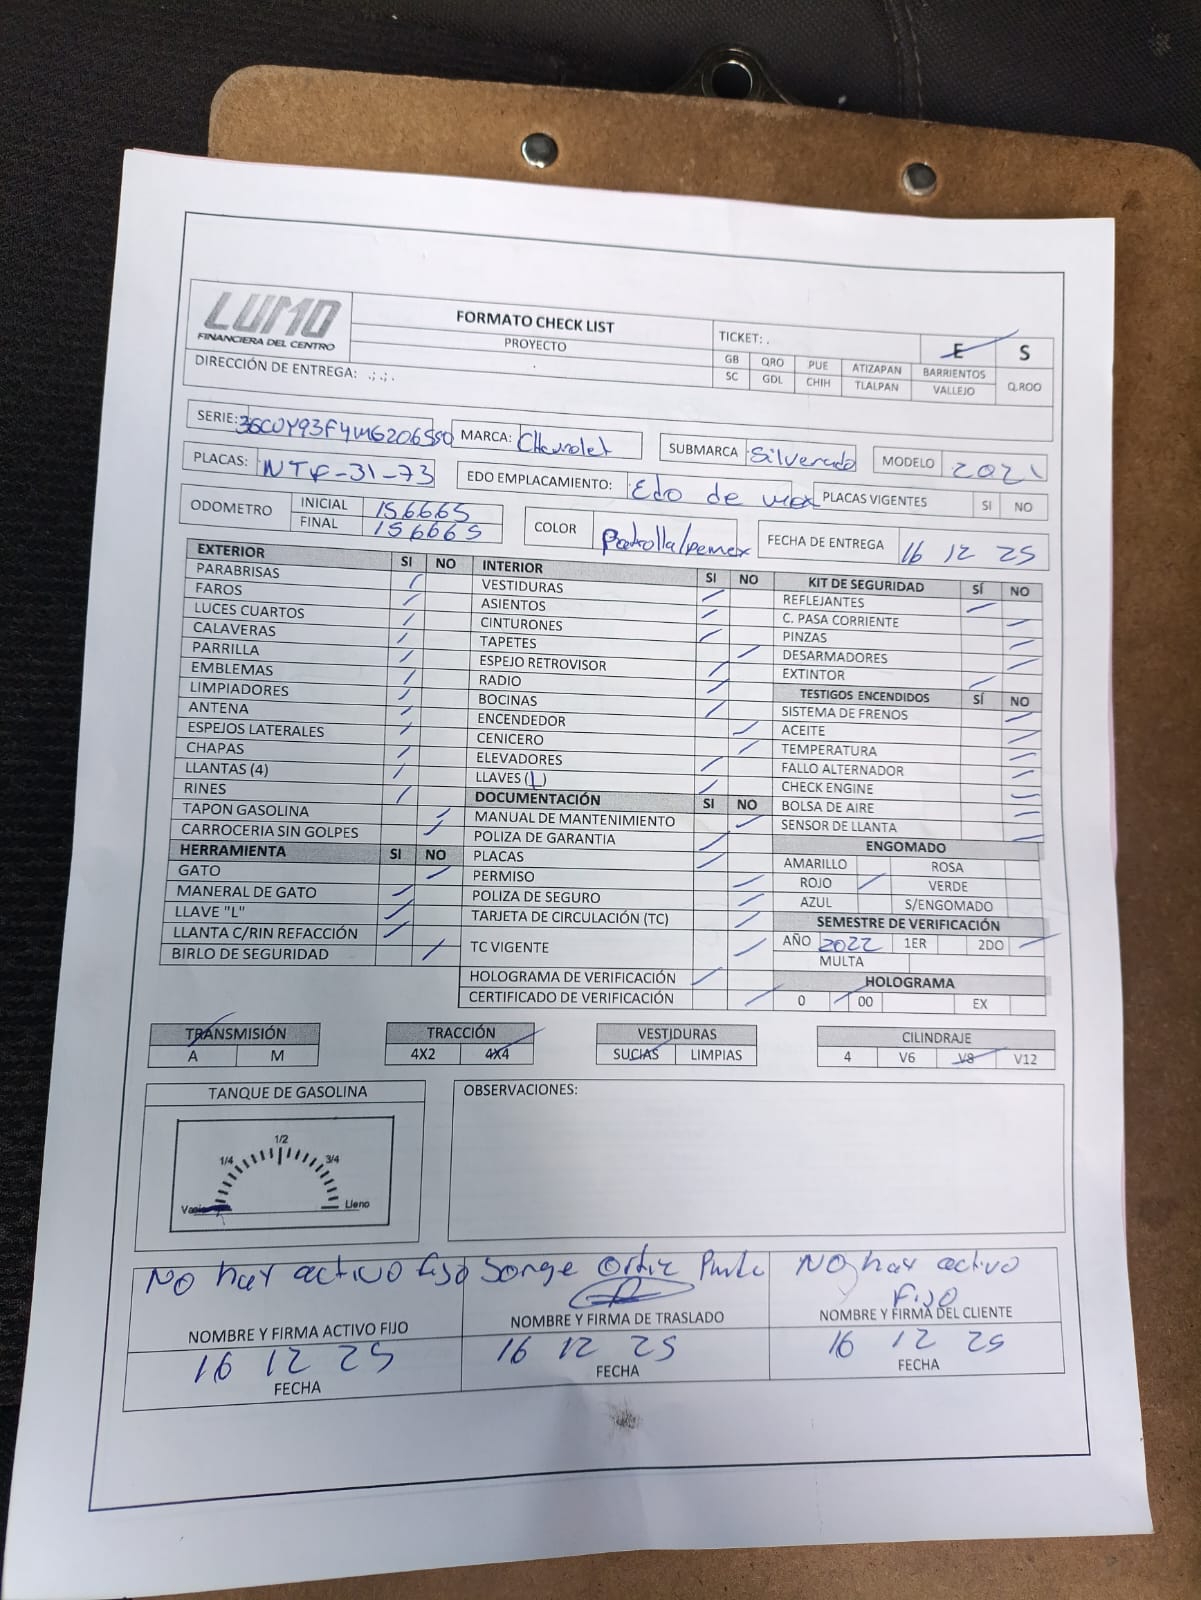 LUMO
FINANCIERA DEL CENTRO
FORMATO CHECK LIST
PROYECTO
TICKET: .
E S
GB QRO PUE ATIZAPAN BARRIENTOS
SC GDL CHIH TLALPAN VALLEJO Q.ROO
DIRECCIÓN DE ENTREGA: .;.;.
SERIE: MARCA: Chevrolet SUBMARCA Silverado MODELO 2021
PLACAS: EDO EMPLACAMIENTO: Edo de mex PLACAS VIGENTES SI NO
ODOMETRO INICIAL 156665
FINAL 156665
COLOR Patrulla/pemex FECHA DE ENTREGA 16 12 25
EXTERIOR SI NO
PARABRISAS
FAROS
LUCES CUARTOS
CALAVERAS
PARRILLA
EMBLEMAS
LIMPIADORES
ANTENA
ESPEJOS LATERALES
CHAPAS
LLANTAS (4)
RINES
TAPON GASOLINA
CARROCERIA SIN GOLPES
HERRAMIENTA SI NO
GATO
MANERAL DE GATO
LLAVE "L"
LLANTA C/RIN REFACCIÓN
BIRLO DE SEGURIDAD
INTERIOR SI NO
VESTIDURAS
ASIENTOS
CINTURONES
TAPETES
ESPEJO RETROVISOR
RADIO
BOCINAS
ENCENDEDOR
CENICERO
ELEVADORES
LLAVES (1)
DOCUMENTACIÓN SI NO
MANUAL DE MANTENIMIENTO
POLIZA DE GARANTIA
PLACAS
PERMISO
POLIZA DE SEGURO
TARJETA DE CIRCULACIÓN (TC)
TC VIGENTE
HOLOGRAMA DE VERIFICACIÓN
CERTIFICADO DE VERIFICACIÓN
KIT DE SEGURIDAD SÍ NO
REFLEJANTES
C. PASA CORRIENTE
PINZAS
DESARMADORES
EXTINTOR
TESTIGOS ENCENDIDOS SÍ NO
SISTEMA DE FRENOS
ACEITE
TEMPERATURA
FALLO ALTERNADOR
CHECK ENGINE
BOLSA DE AIRE
SENSOR DE LLANTA
ENGOMADO
AMARILLO ROSA
ROJO VERDE
AZUL S/ENGOMADO
SEMESTRE DE VERIFICACIÓN
AÑO 2022 1ER 2DO
MULTA
HOLOGRAMA
0 00 EX
TRANSMISIÓN
A M
TRACCIÓN
4X2 4X4
VESTIDURAS
SUCIAS LIMPIAS
CILINDRAJE
4 V6 V8 V12
TANQUE DE GASOLINA
1/2
1/4 3/4
Vacio Lleno
OBSERVACIONES:
No hay activo fijo
NOMBRE Y FIRMA ACTIVO FIJO
16 12 25
FECHA
Jorge Ortiz
NOMBRE Y FIRMA DE TRASLADO
16 12 25
FECHA
NO hay activo
fijo
NOMBRE Y FIRMA DEL CLIENTE
16 12 25
FECHA